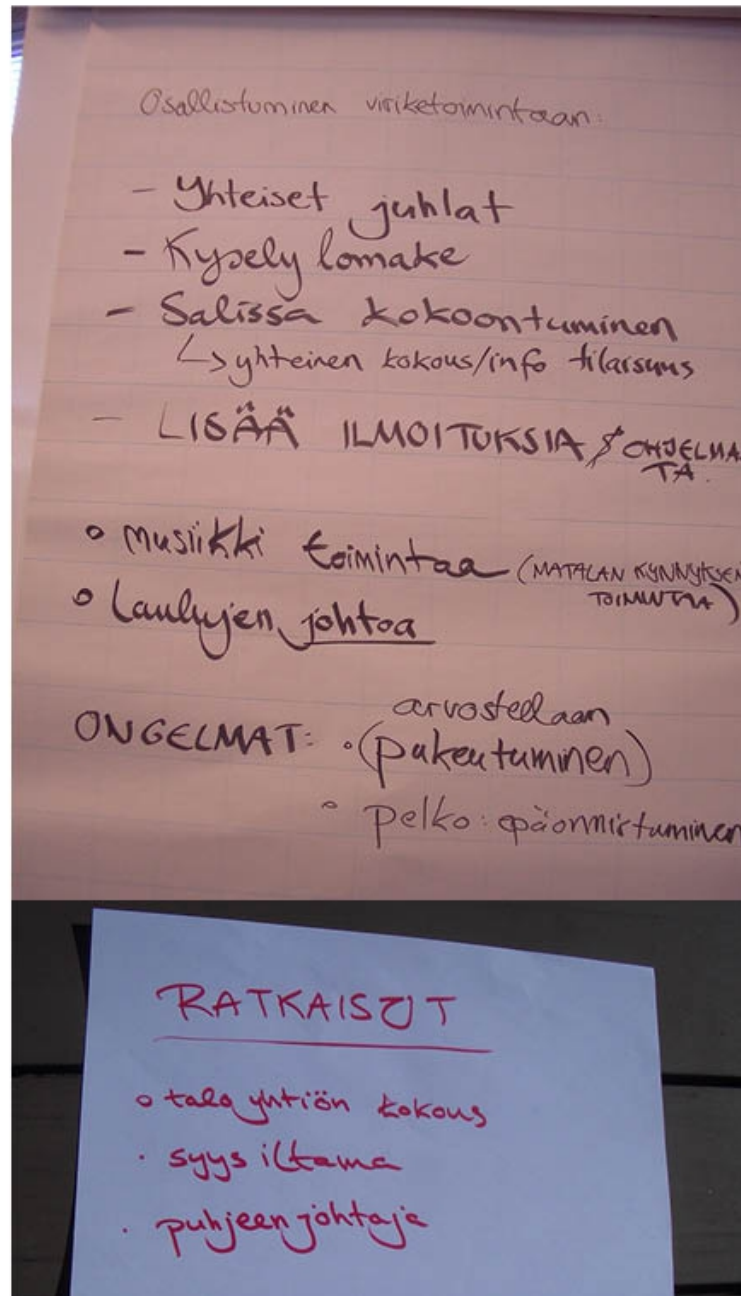 Osallistuminen viriketoimintaan:
- Yhteiset juhlat
- Kysely lomake
- Salissa kokoontuminen
↳ yhteinen kokous/info tilaisuus
- LISÄÄ ILMOITUKSIA / OHJELMA
TA.
o musiikki toimintaa (MATALAN KYNNYKSEN
TOIMINTAA)
o Laulujen johtoa
arvostellaan
ONGELMAT: • (pukeutuminen)
o pelko: epäonnistuminen
RATKAISUT
o talo yhtiön kokous
• syys iltama
• puhjeenjohtaja